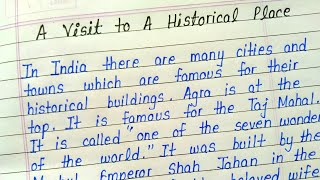 A Visit to A Historical Place
In India there are many cities and
towns which are famous for their
historical buildings. Agra is at the
top. It is famous for the Taj Mahal.
It is called "one of the seven wonder
of the world." It was built by the
Emperor Shah Jahan in the
beloved wife